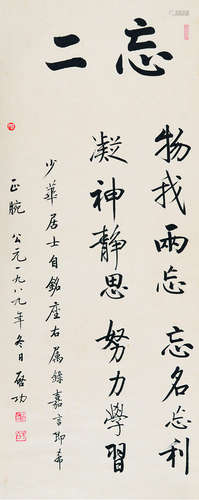 忘二
物我兩忘 忘名忘利
凝神靜思 努力學習
少華居士自銘座右属録嘉言即希
正腕 公元一九八九年冬日 啓功